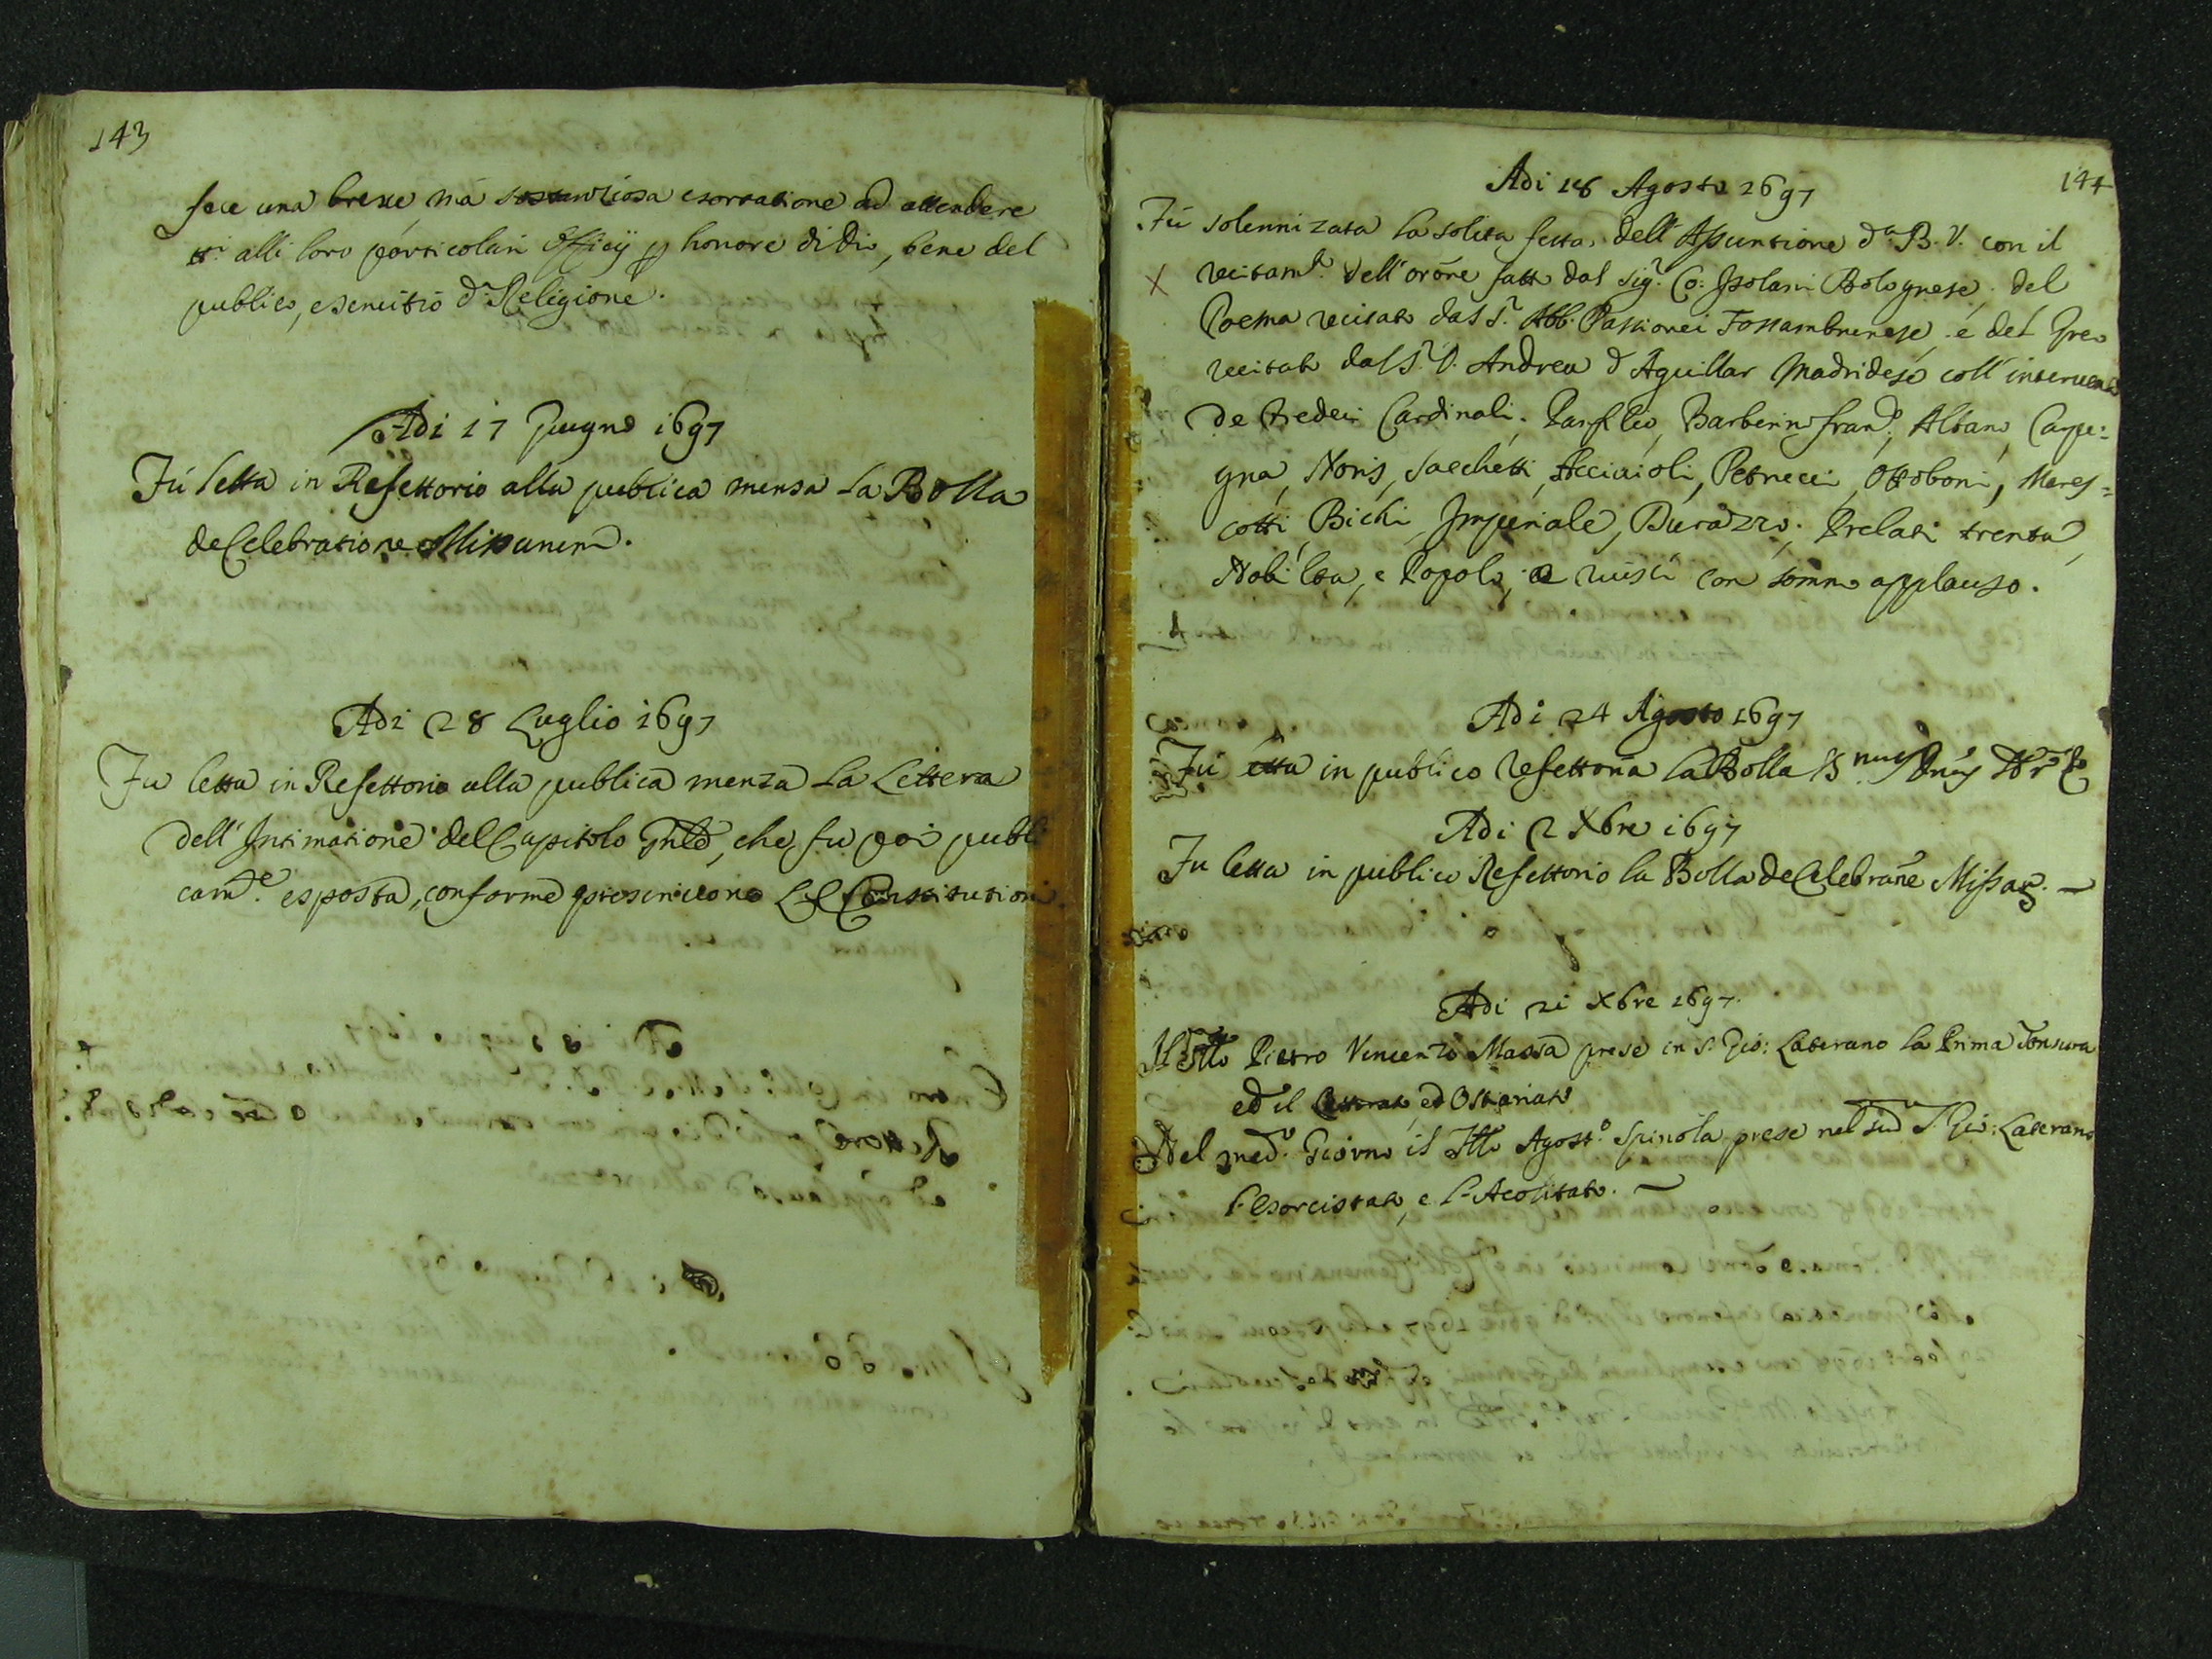 143
fece una breue mà sostanziosa esortatione ad attendere
tti alli loro particolari Officij p honore di Dio, bene del
publico, e seruitio d. Religione.
Adi 17 Giugno 1697
Fù letta in Refettorio alla publica mensa La Bolla
de Celebratione Missarum.
Adi 28 Luglio 1697
Fu letta in Refettorio alla publica mensa La Lettera
dell' Intimatione del Capitolo Gnle, che fu poi publi
camte. esposta, conforme prescriuono Le Constitutioni.
144
Adi 18 Agosto 1697
Fù solennizata la solita festa dell' Assuntione da. B. V. con il
recitamto. dell' orone fatta dal Sigr. Co: Isolani Bolognese, del
Poema recitato dal Sr. Abb. Passionei Fossambrunese, e del Greco
recitato dal Sr. D. Andrea d Aguillar Madridese coll' interuento
de tredeci Cardinali. Panfilio, Barberini Franco., Albano, Carpe:
gna, Noris, Sacchetti, Acciaioli, Petrucci, Ottoboni, Mares=
cotti, Bichi, Imperiale, Durazzo. Prelati trenta,
Nobiltà, e Popolo, e riuscì con sommo applauso.
Adi 24 Agosto 1697
Fù letta in publico Refettorio La Bolla Snus Dnus Nr
Adi 2 Xbre 1697
Fu letta in publico Refettorio la Bolla de Celebrane Missar. —
Adi 21 Xbre 1697.
Il Pietro Vincenzo Massa prese in S. Gio: Laterano la Prima Tonsura
ed il Lettorato, ed Ostiariato
Nel medo. Giorno il Agosto. Spinola prese nel sud S. Gio: Laterano
l'Esorcistato, e l'Acolitato. —